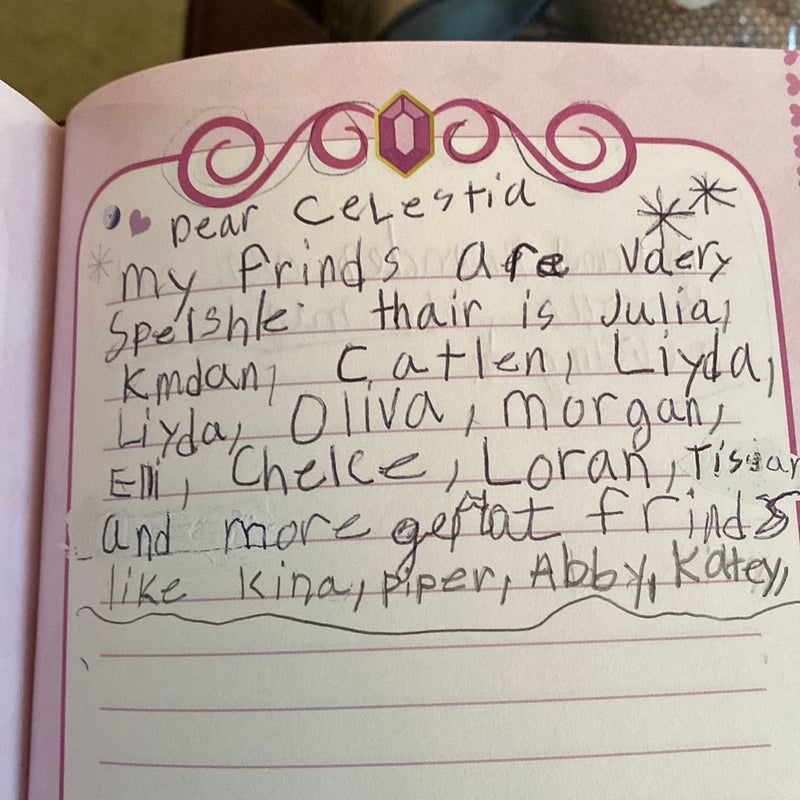 Dear Celestia
my frinds are vdery
Speishle thair is Julia,
Kmdan, Catlen, Liyda,
Liyda, Oliva, morgan,
Elli, Chelce, Loran,
and more frinds
like Kina, piper, Abby, Katey,